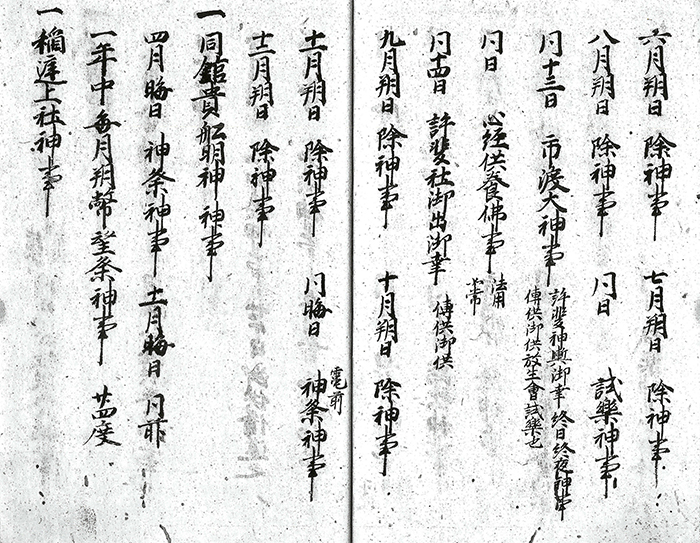 六月朔日 除神事 七月朔日 除神事
八月朔日 除神事 同日 試樂神事
同十三日 市渡大神事 許斐神輿御幸 終日終夜神事
傳供御供放生會試樂也
同日 心経供養佛事 法用
如常
同十四日 許斐社御出御幸 傳供御供
九月朔日 除神事 十月朔日 除神事
十一月朔日 除神事 同晦日 竃前 神祭神事
十二月朔日 除神事
一 同舘貴船明神神事
四月晦日 神祭神事 十一月晦日 同前
一年中毎月朔幣望祭神事 廿四度
一 稲淀上社神事